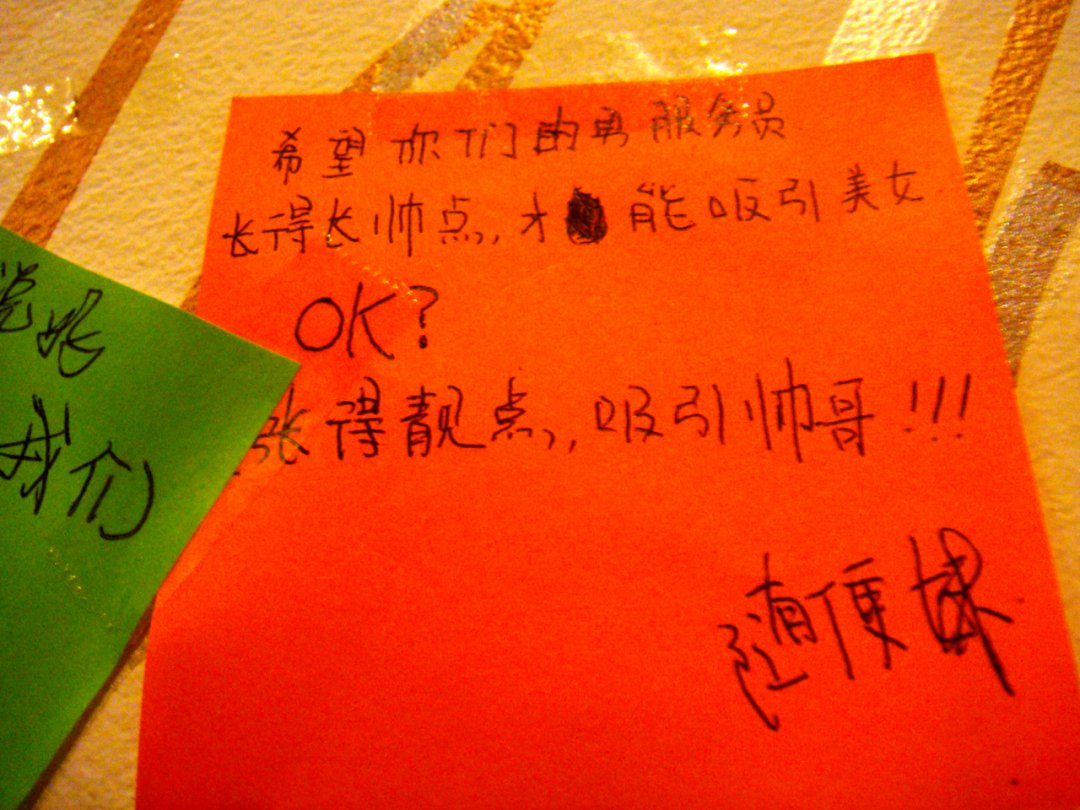 希望你们的男服务员
长得长帅点,才能吸引美女
OK?
张得靓点,吸引帅哥!!!
随便妹
我们